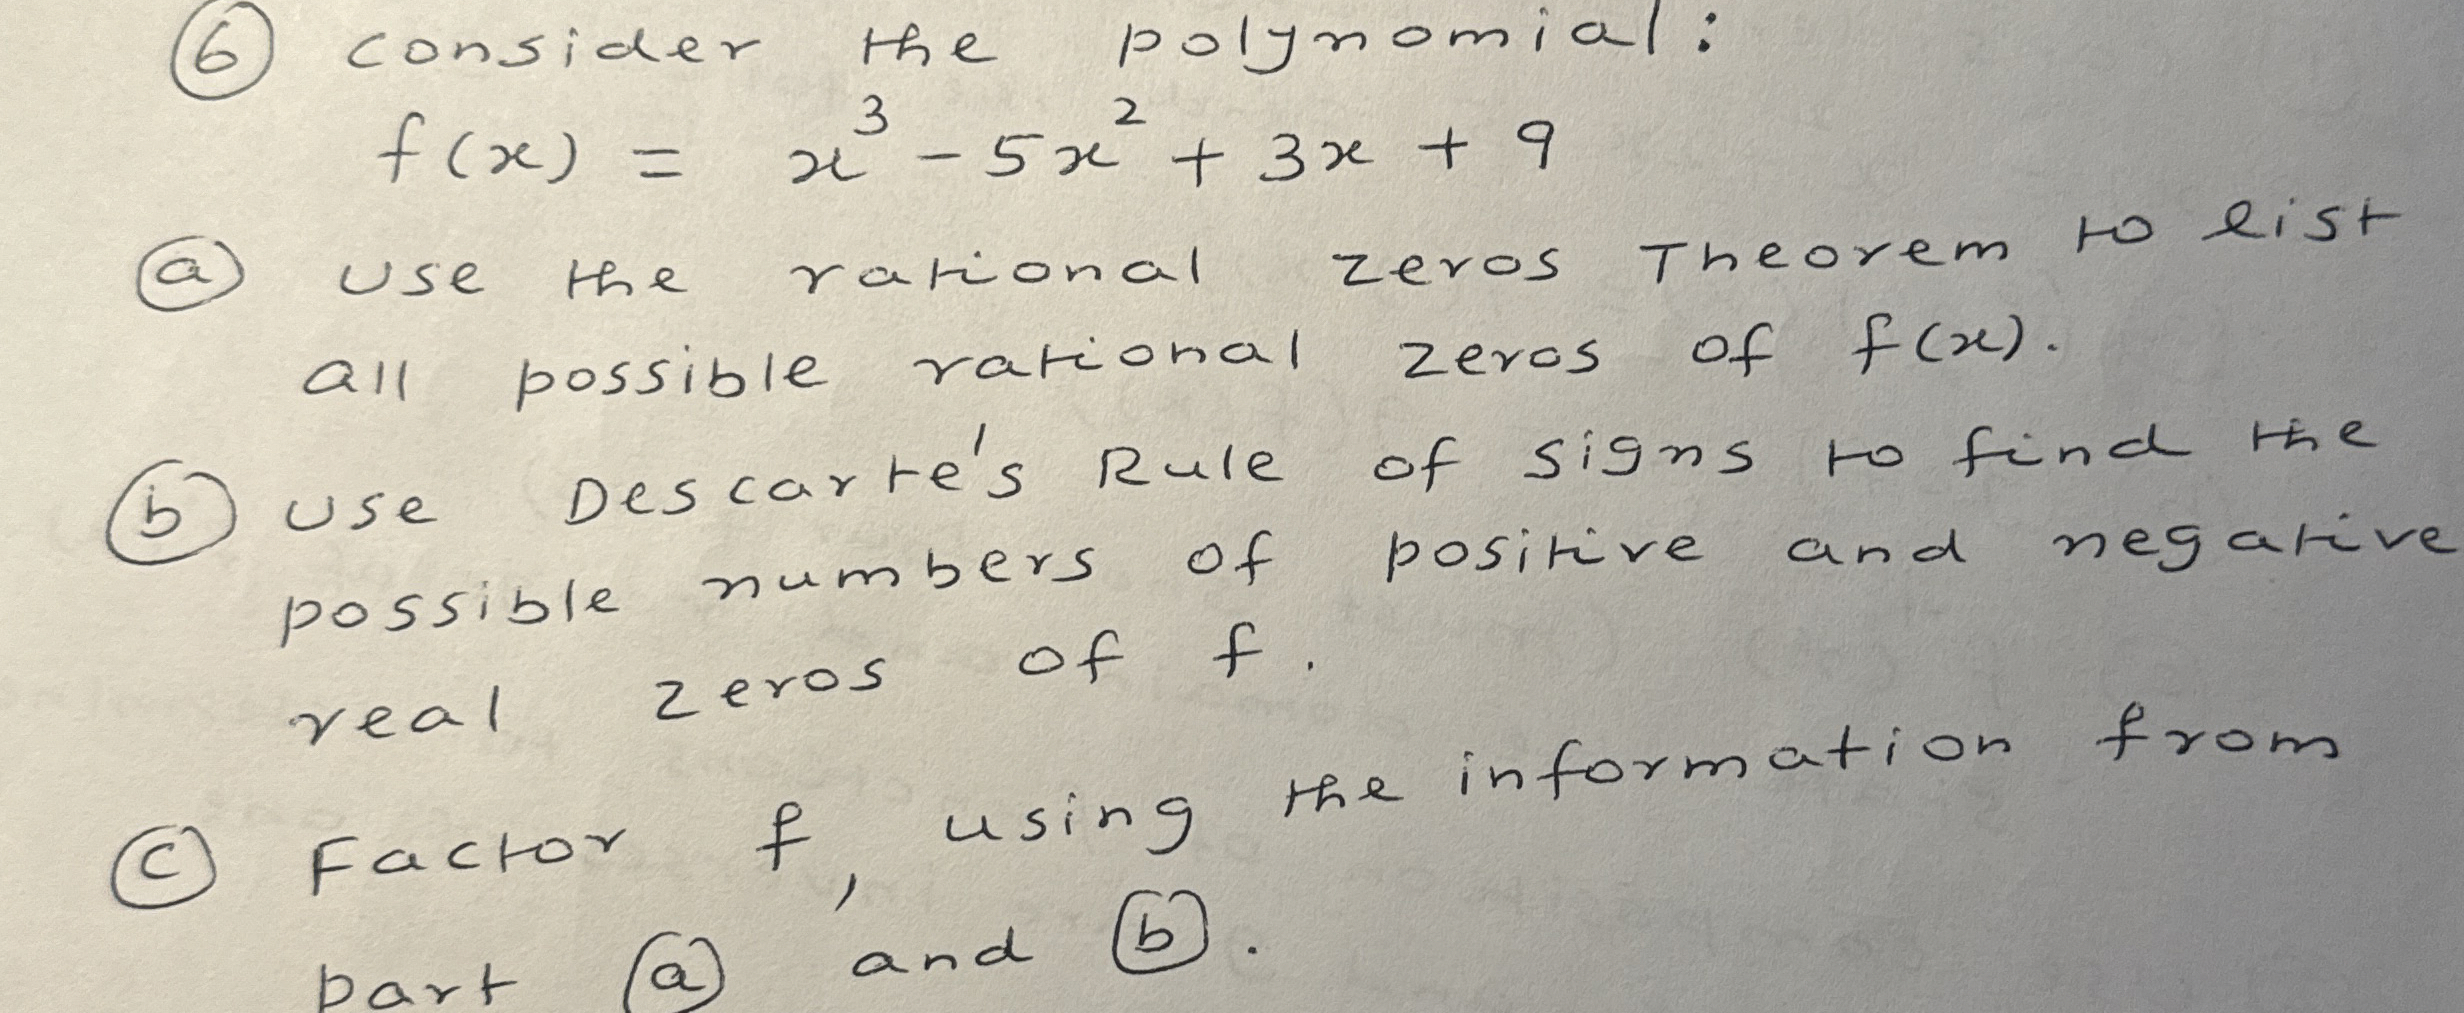 ⑥ consider the polynomial:
f(x) = x³ - 5x² + 3x + 9
ⓐ use the rational zeros Theorem to list
all possible rational zeros of f(x).
ⓑ use Descarte's Rule of signs to find the
possible numbers of positive and negative
real zeros of f.
ⓒ Factor f, using the information from
part ⓐ and ⓑ.